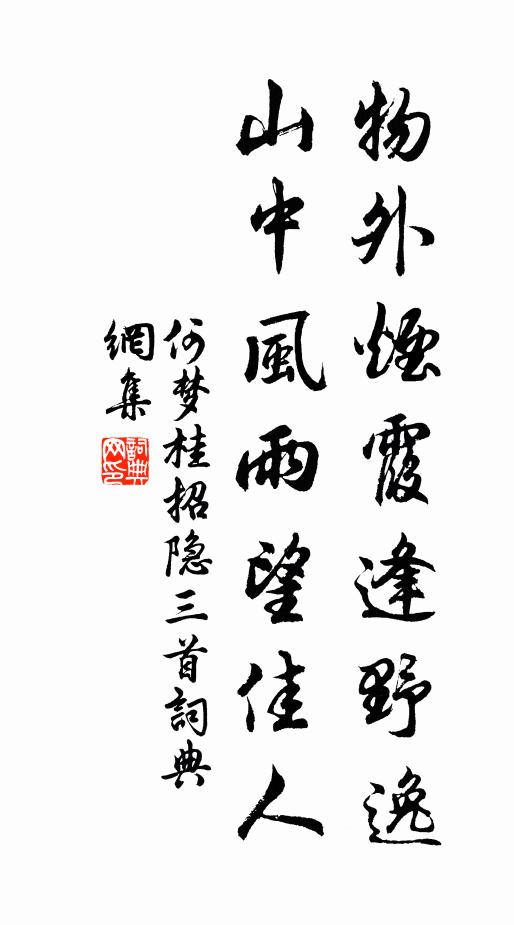 物外煙霞逢野逸
山中風雨望佳人
何梦桂招隐三首詞典
網集
詞典网印